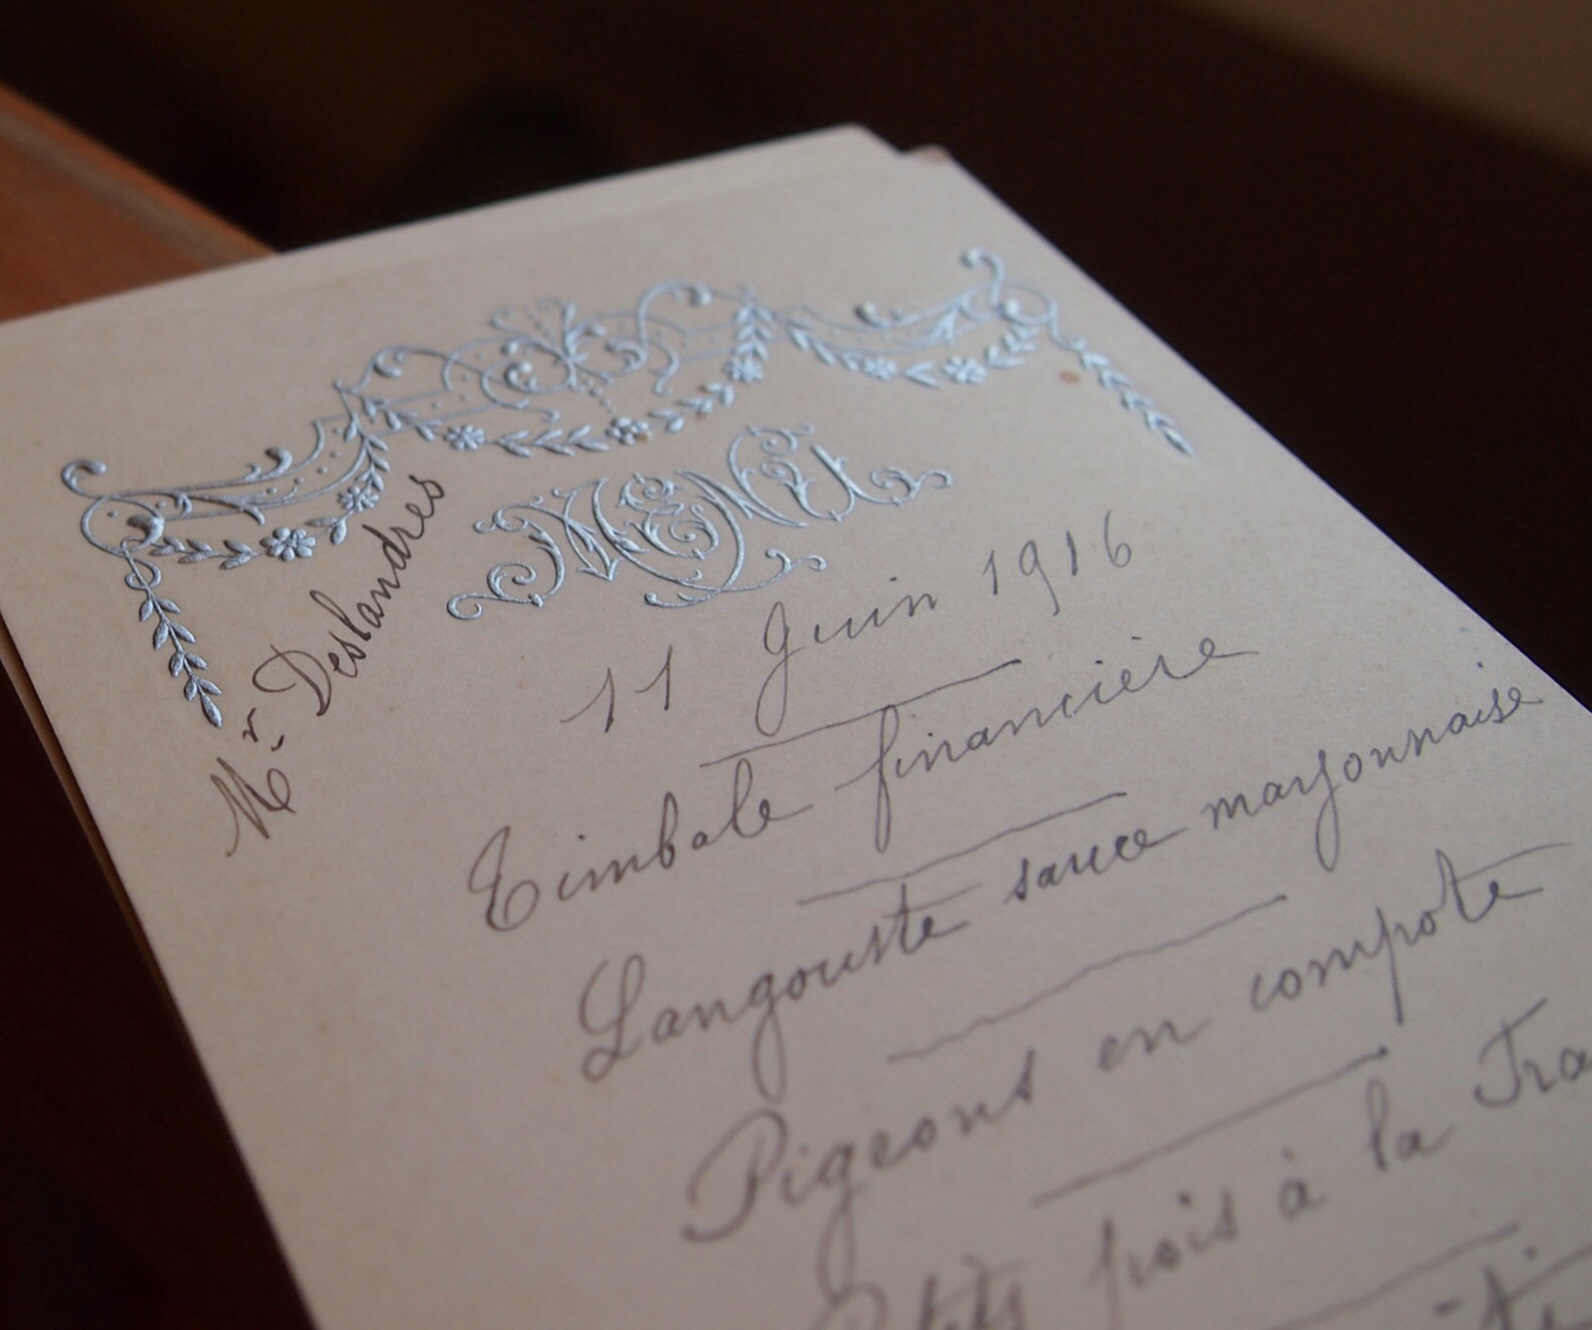 MENU
Mr. Deslandres
11 Juin 1916
Timbale financière
Langouste sauce mayonnaise
Pigeons en compote
Petits pois à la